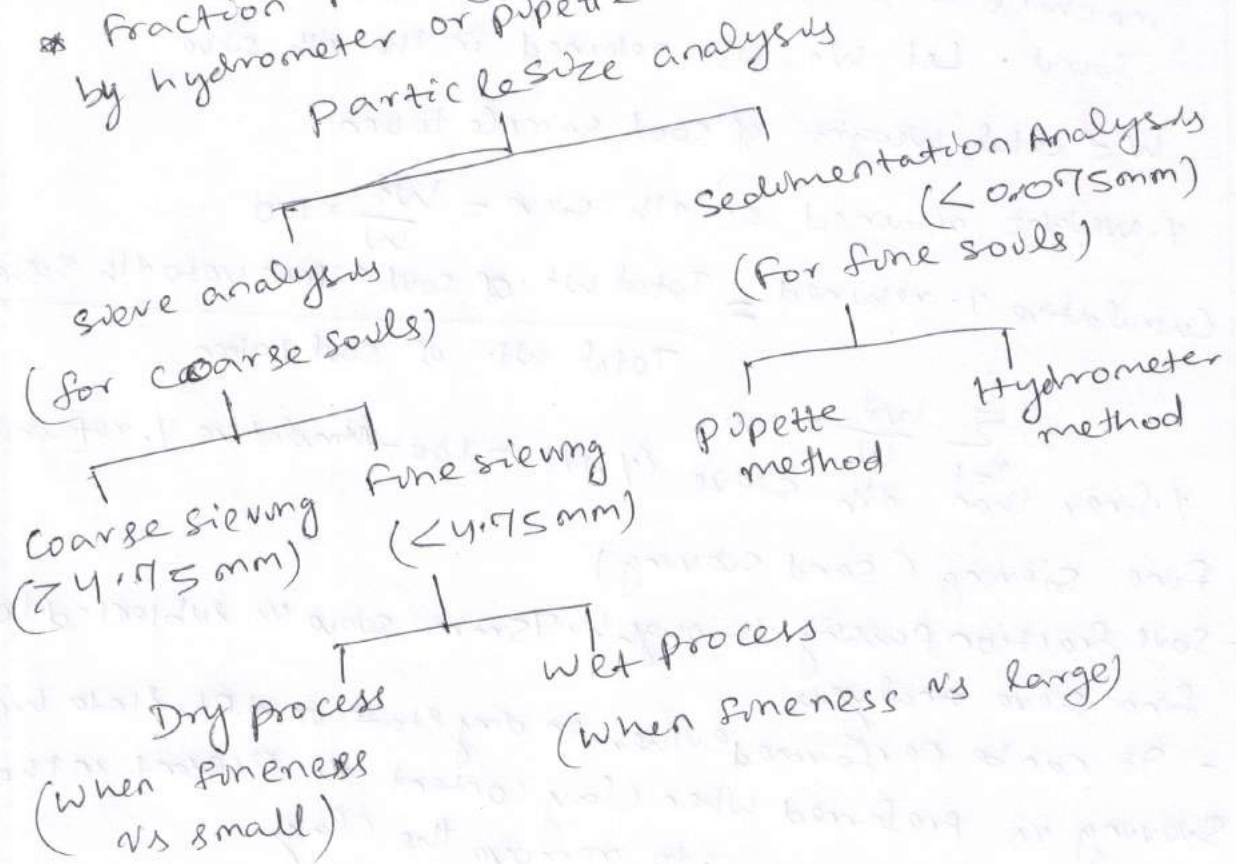 * fraction
by hydrometer or pipette
Particle size analysis
Sieve analysis
(for coarse soils)
Sedimentation Analysis
(< 0.075mm)
(For fine soils)
Coarse sieving
(≥4.75mm)
Fine sieving
(<4.75mm)
Pipette
method
Hydrometer
method
Dry process
(when fineness
is small)
Wet process
(when fineness is large)